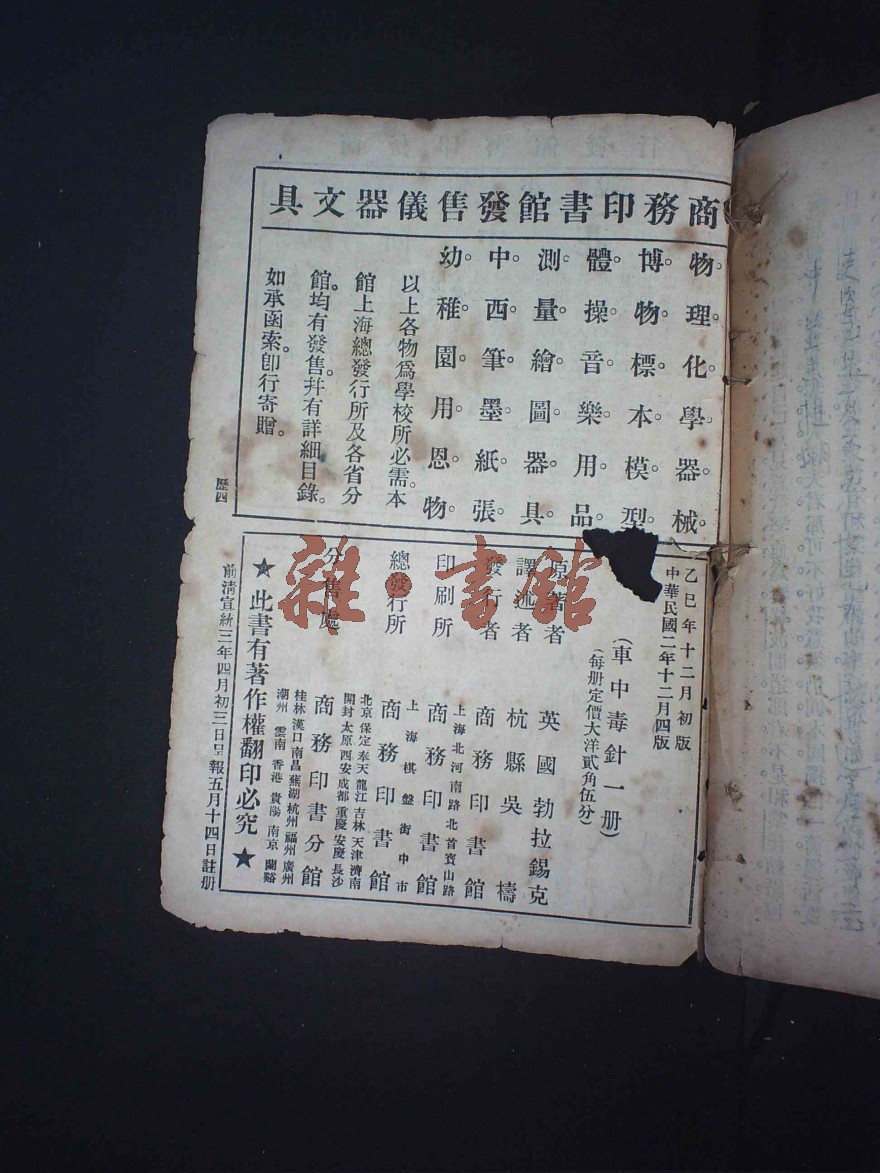 商務印書館發售儀器文具
物理化學器械。
博物標本模型。
體操音樂用品。
測量繪圖器具。
中西筆墨紙張。
幼稚園用恩物。
以上各物爲學校所必需。本
館上海總發行所及各省分
館。均有發售。幷有詳細目錄。
如承函索。卽行寄贈。
歷四
乙巳年十二月初版
中華民國二年十二月四版
(車中毒針一册)
(每册定價大洋貳角伍分)
原著者 英國勃拉錫克
譯述者 杭縣吳檮
發行者 商務印書館
上海北河南路北首寶山路
印刷所 商務印書館
上海棋盤街中市
總發行所 商務印書館
北京保定奉天龍江吉林天津濟南
開封太原西安成都重慶安慶長沙
分售處 商務印書分館
桂林漢口南昌蕪湖杭州福州廣州
潮州雲南香港貴陽南京蘭谿
★此書有著作權翻印必究★
前淸宣統三年四月初三日呈報五月十四日註册
雜·書館